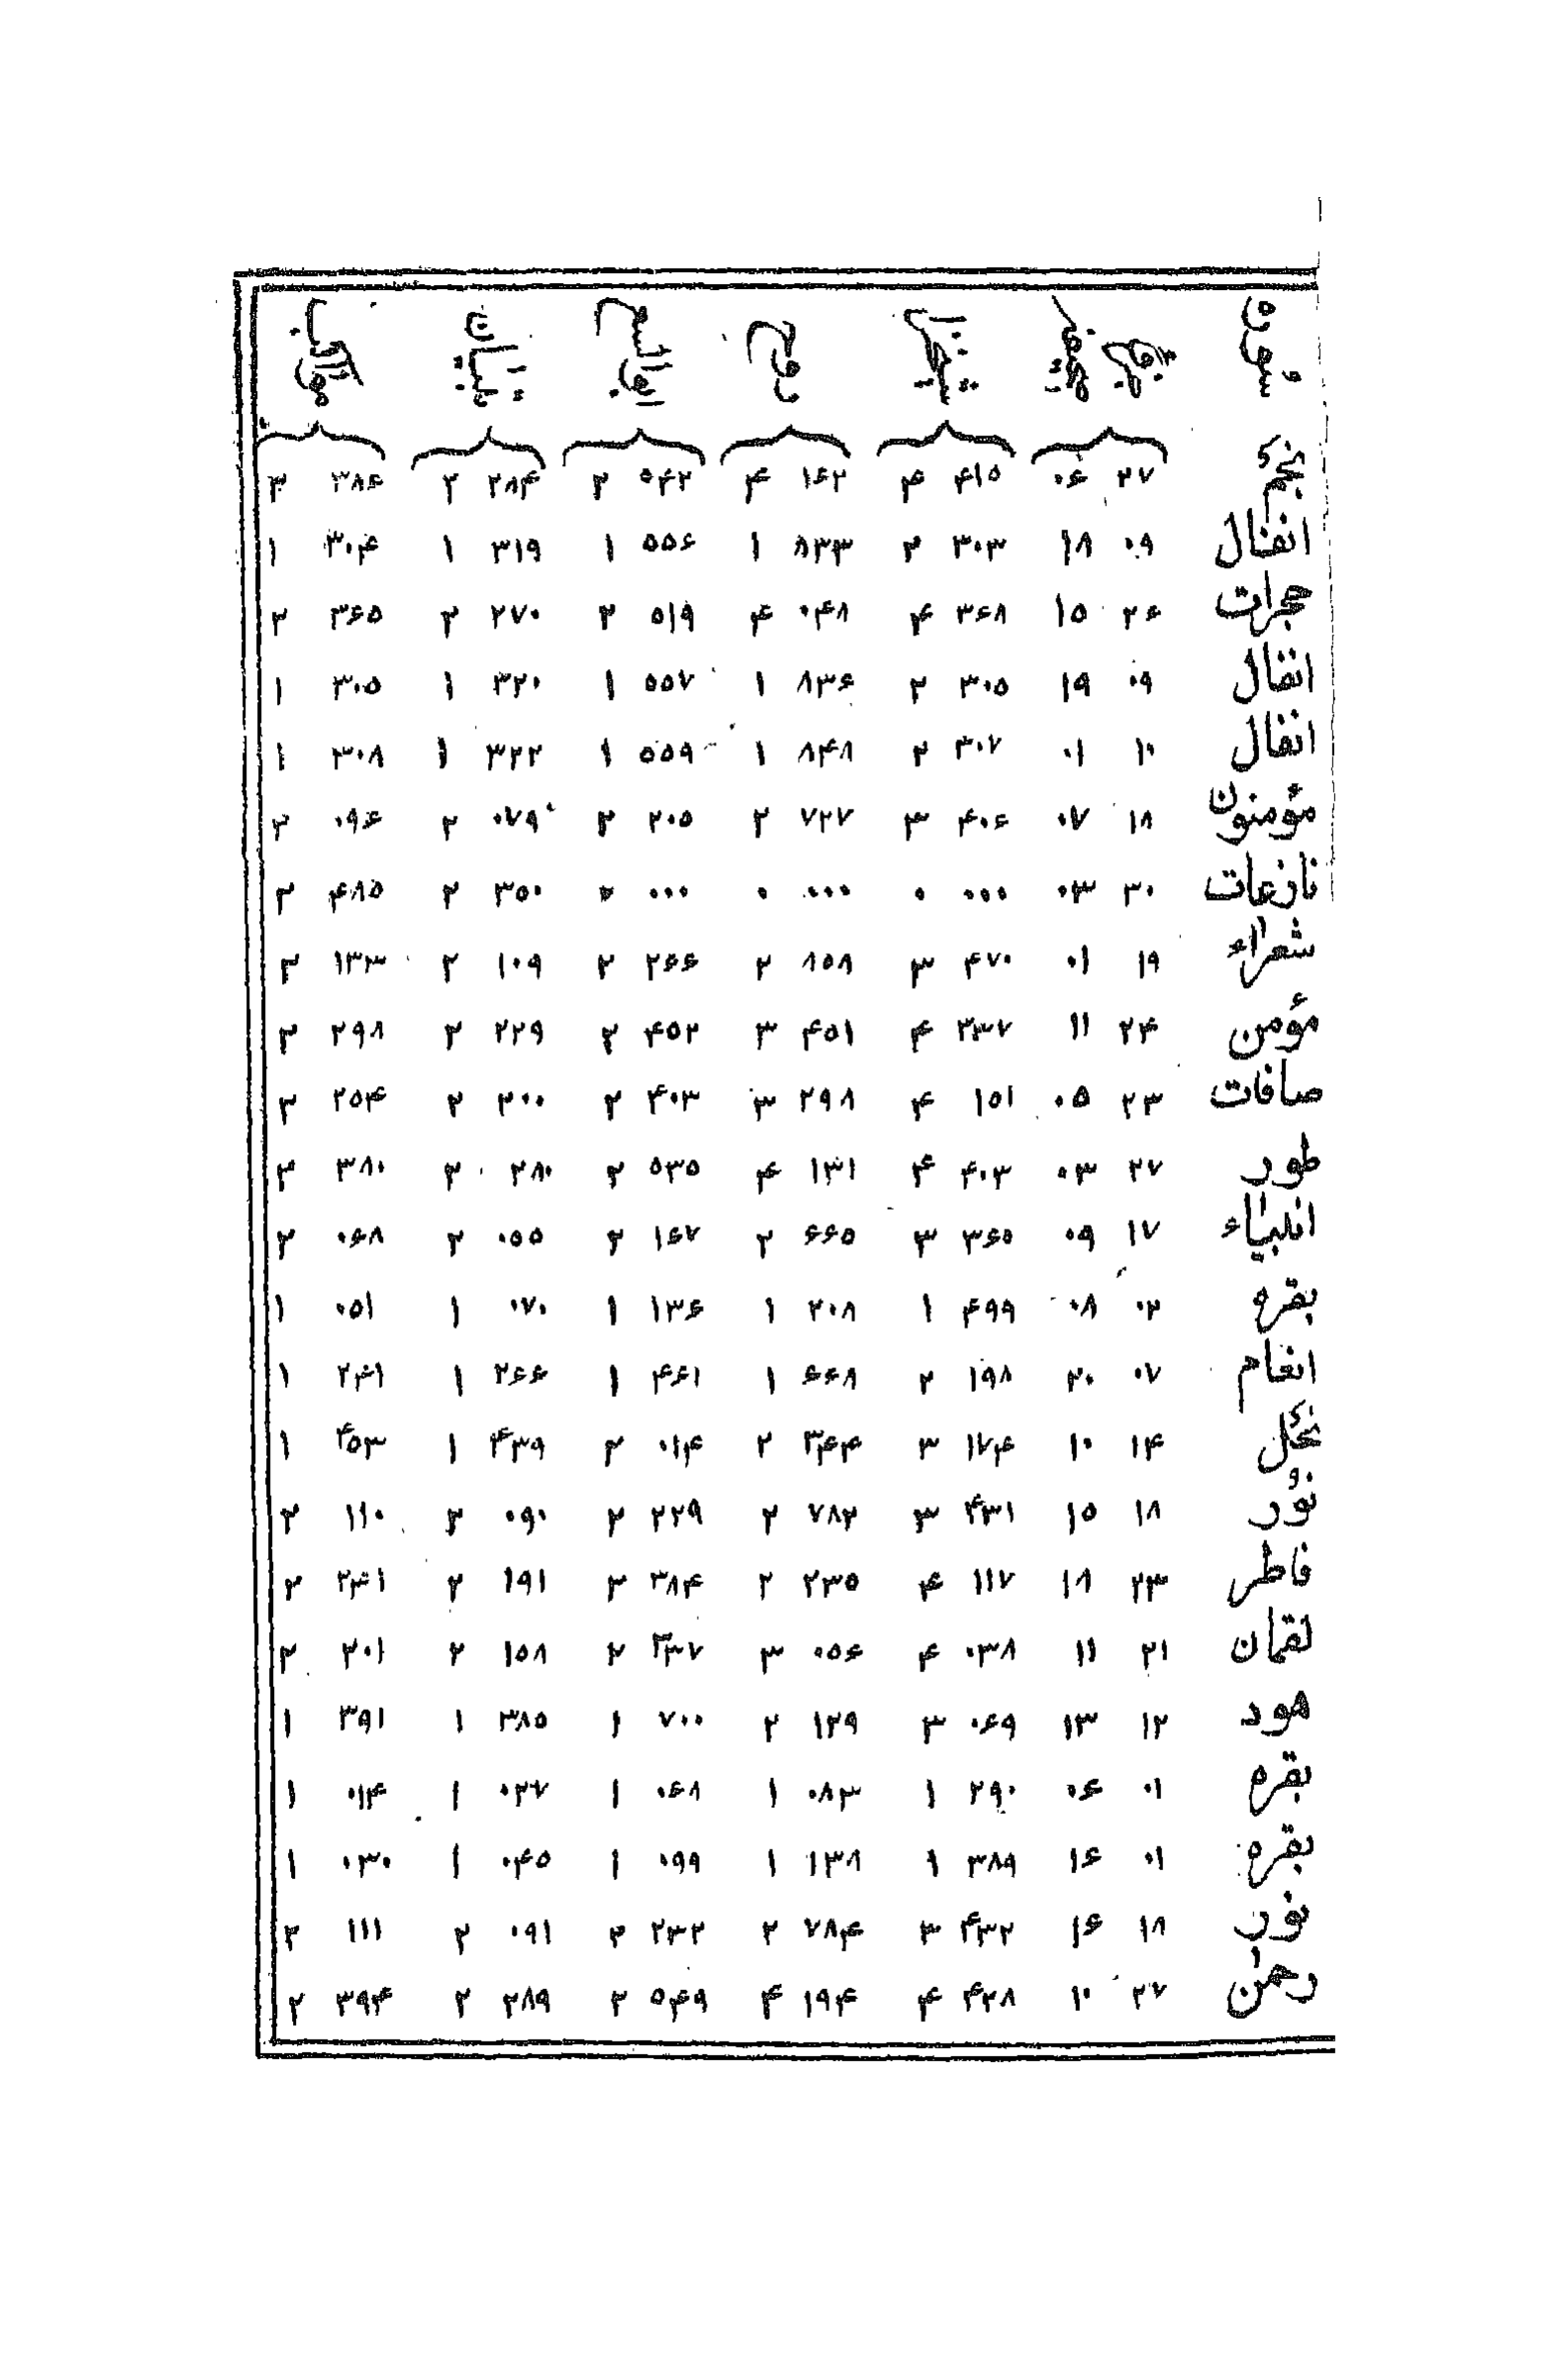 نجم ۲۷ ۰۶ ۴۱۵ ۴ ۱۶۲ ۴ ۵۴۲ ۲ ۲۸۴ ۲ ۳۸۶ ۲
انفال ۰۹ ۱۸ ۳۰۳ ۲ ۸۳۳ ۱ ۵۵۶ ۱ ۳۱۹ ۱ ۳۰۴ ۱
حجرات ۲۶ ۱۵ ۳۶۸ ۴ ۰۴۸ ۴ ۵۱۹ ۲ ۲۷۰ ۲ ۳۶۵ ۲
انفال ۰۹ ۱۹ ۳۰۵ ۲ ۸۳۶ ۱ ۵۵۷ ۱ ۳۲۰ ۱ ۳۰۵ ۱
انفال ۱۰ ۰۱ ۳۰۷ ۲ ۸۴۸ ۱ ۵۵۹ ۱ ۳۲۲ ۱ ۳۰۸ ۱
مؤمنون ۱۸ ۰۷ ۴۰۶ ۳ ۷۲۷ ۲ ۲۰۵ ۲ ۰۷۹ ۲ ۰۹۶ ۲
نازعات ۳۰ ۰۳ ۰۰۰ ۰ ۰۰۰ ۰ ۰۰۰ ۰ ۳۵۰ ۲ ۴۸۵ ۲
شعراء ۱۹ ۰۱ ۴۷۰ ۳ ۸۵۸ ۲ ۲۶۶ ۲ ۱۰۹ ۲ ۱۳۳ ۲
مؤمن ۲۴ ۱۱ ۲۳۷ ۴ ۴۵۱ ۳ ۴۵۲ ۲ ۲۲۹ ۲ ۲۹۸ ۲
صافات ۲۳ ۰۵ ۱۵۱ ۴ ۲۹۸ ۳ ۴۰۳ ۲ ۲۰۰ ۲ ۲۵۴ ۲
طور ۲۷ ۰۳ ۴۰۳ ۴ ۱۳۱ ۴ ۵۳۵ ۲ ۲۸۰ ۲ ۳۸۰ ۲
انبیاء ۱۷ ۰۹ ۳۶۵ ۳ ۶۶۵ ۲ ۱۶۷ ۲ ۰۵۵ ۲ ۰۶۸ ۲
بقره ۰۲ ۰۸ ۴۹۹ ۱ ۲۰۸ ۱ ۱۳۶ ۱ ۰۷۰ ۱ ۰۵۱ ۱
انعام ۰۷ ۲۰ ۱۹۸ ۲ ۶۶۸ ۱ ۴۶۱ ۱ ۲۶۶ ۱ ۲۴۱ ۱
نحل ۱۴ ۱۰ ۱۷۴ ۳ ۳۴۴ ۲ ۰۱۴ ۲ ۴۳۹ ۱ ۴۵۳ ۱
نور ۱۸ ۱۵ ۴۳۱ ۳ ۷۸۲ ۲ ۲۲۹ ۲ ۰۹۰ ۲ ۱۱۰ ۲
فاطر ۲۳ ۱۸ ۱۱۷ ۴ ۲۳۵ ۲ ۳۸۴ ۲ ۱۹۱ ۲ ۲۴۱ ۲
لقمان ۲۱ ۱۱ ۰۳۸ ۴ ۰۵۶ ۳ ۳۳۷ ۲ ۱۵۸ ۲ ۲۰۱ ۲
هود ۱۲ ۱۳ ۰۶۹ ۳ ۱۲۹ ۲ ۷۰۰ ۱ ۳۸۵ ۱ ۳۹۱ ۱
بقره ۰۱ ۰۶ ۲۹۰ ۱ ۰۸۳ ۱ ۰۶۸ ۱ ۰۲۷ ۱ ۰۱۴ ۱
بقره ۰۱ ۱۶ ۳۸۹ ۱ ۱۳۸ ۱ ۰۹۹ ۱ ۰۴۵ ۱ ۰۳۰ ۱
نور ۱۸ ۱۶ ۴۳۲ ۳ ۷۸۴ ۲ ۲۳۲ ۲ ۰۹۱ ۲ ۱۱۱ ۲
رحمن ۲۷ ۱۰ ۴۲۸ ۴ ۱۹۴ ۴ ۵۴۹ ۲ ۲۸۹ ۲ ۳۹۴ ۲